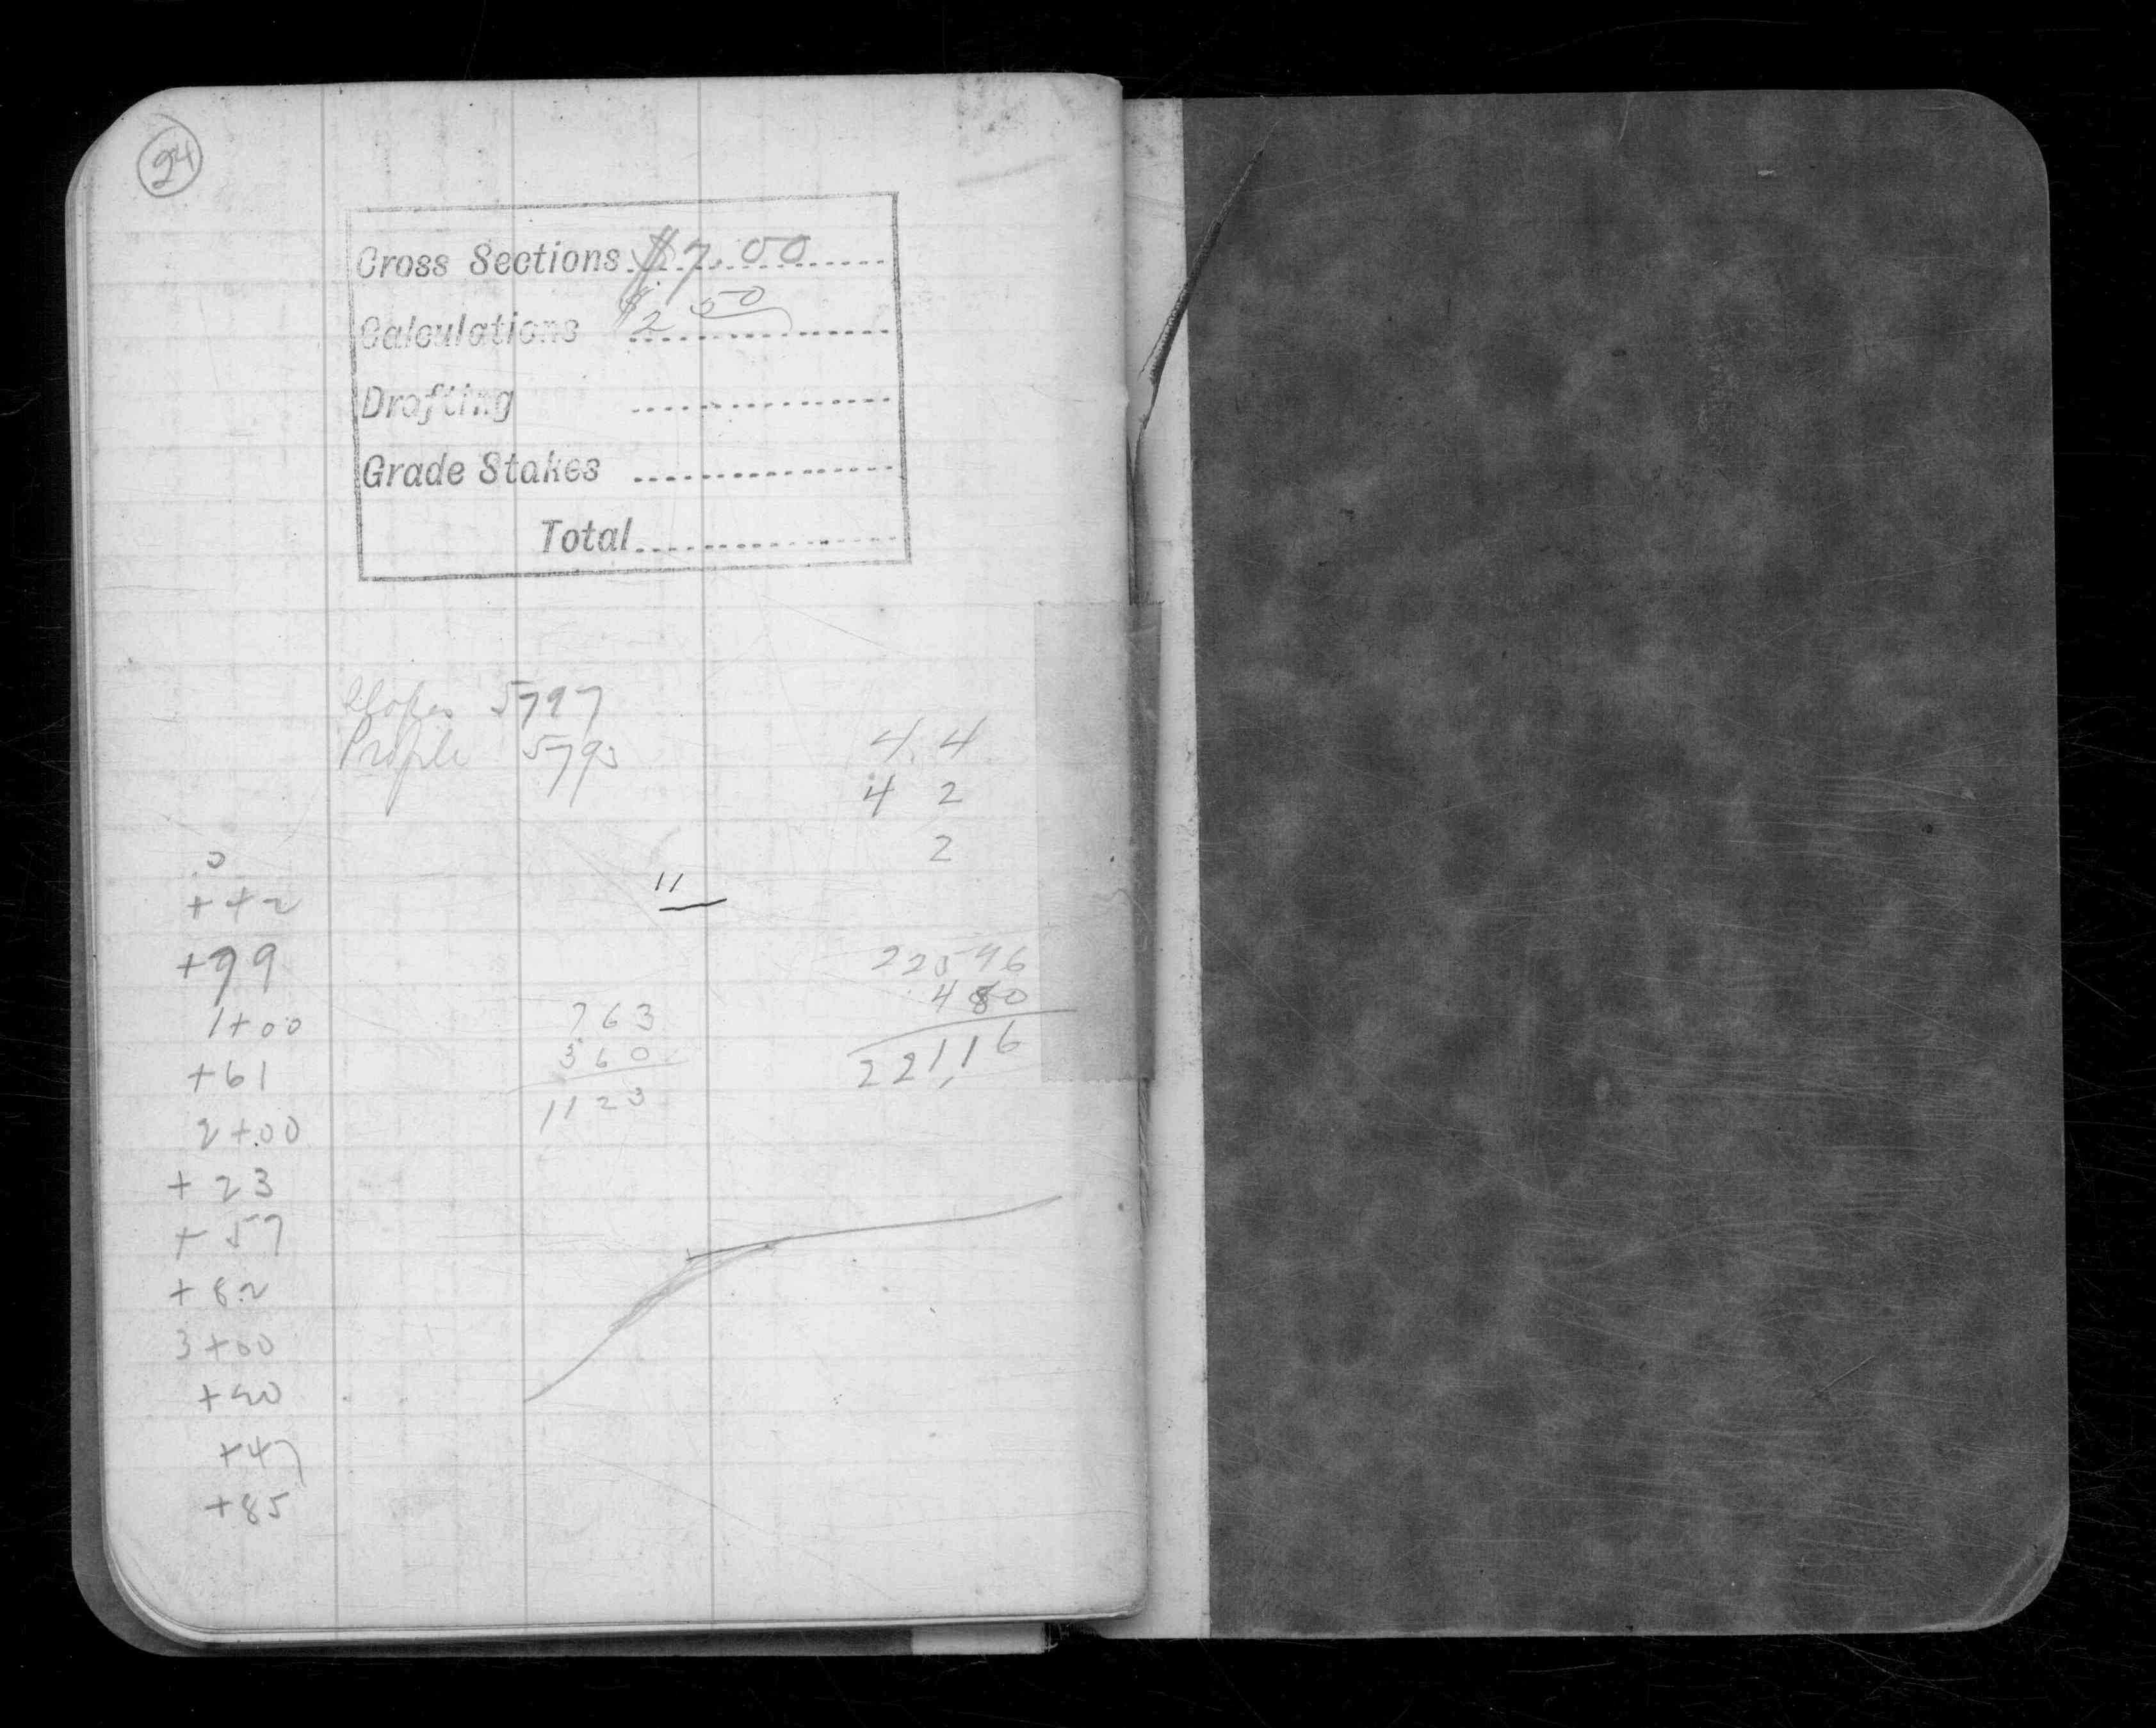 24
Cross Sections $7.00
Calculations $2 50
Drafting
Grade Stakes
Total
Slopes 5797
Profile 5793
4.4
4 2
2
0
+42
11
+99
22596
480
22116
1+00
763
360
1123
+61
2+00
+23
+57
+82
3+00
+47
+85